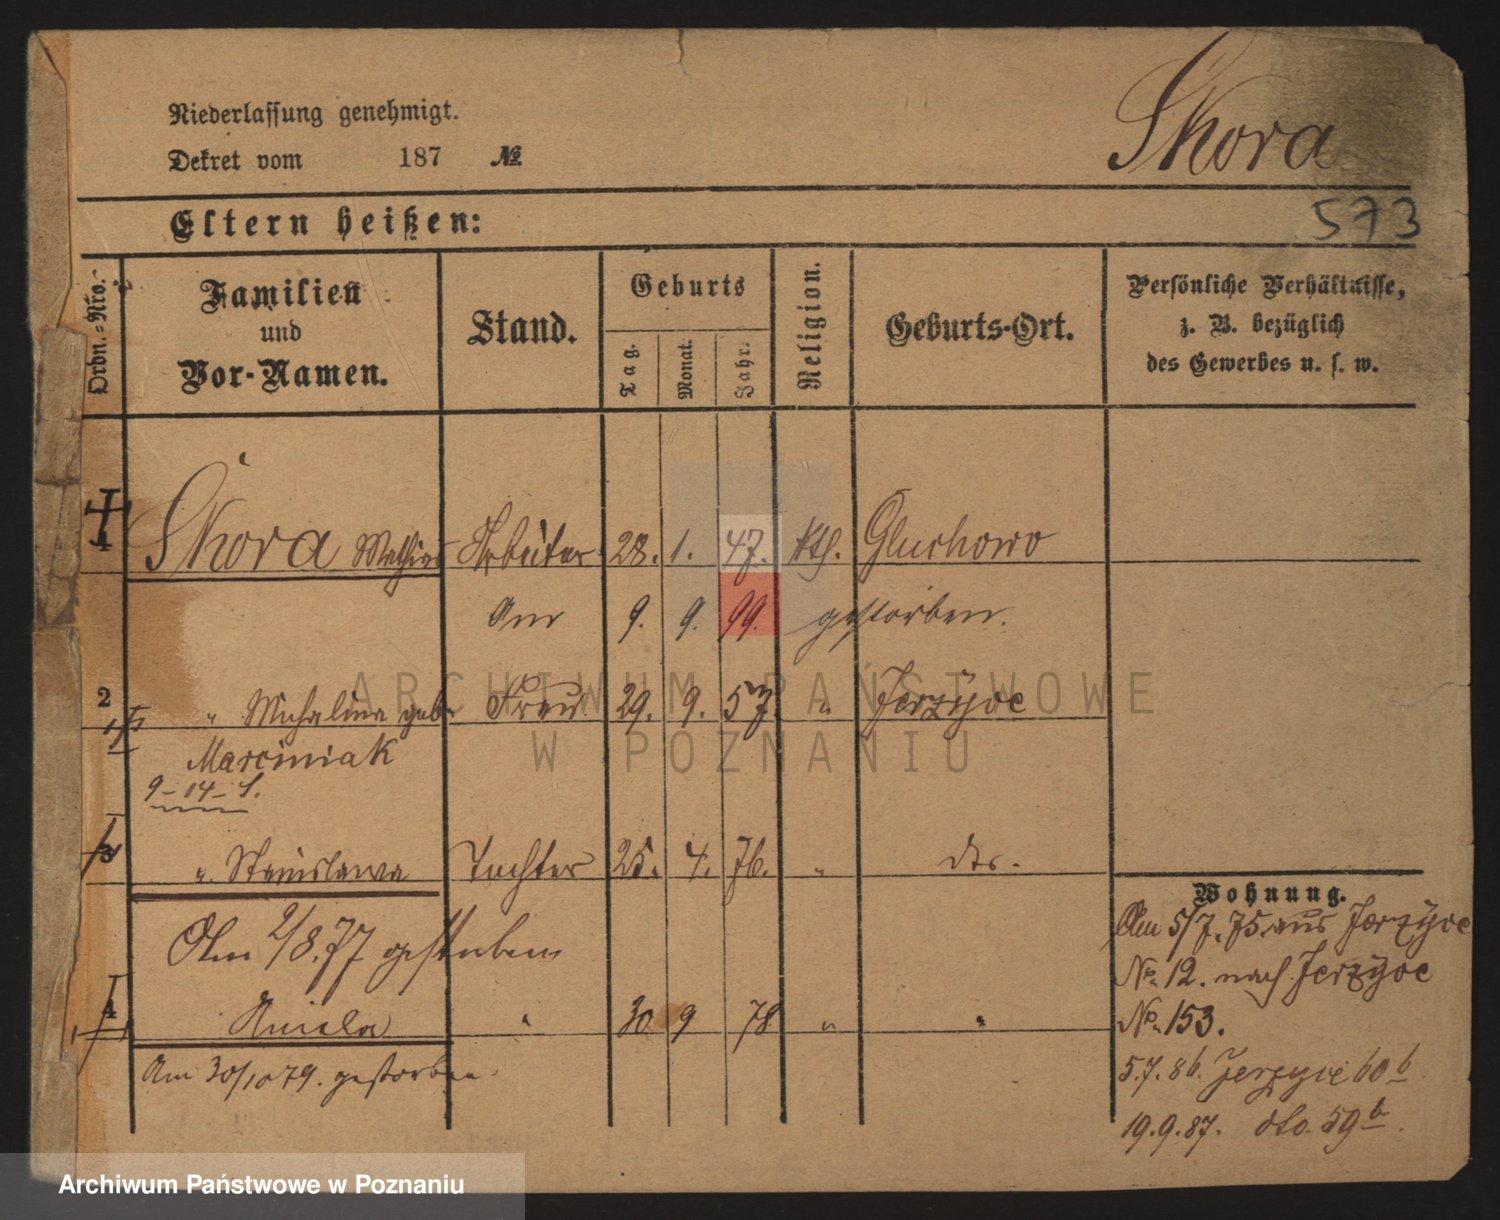 Skora
Niederlassung genehmigt.
Dekret vom 187 №
573
Eltern heißen:
Ordn.=Nro.
Familien
und
Vor-Namen.
Stand.
Geburts
Tag.
Monat.
Jahr.
Religion.
Geburts-Ort.
Persönliche Verhältnisse,
z. B. bezüglich
des Gewerbes u. s. w.
1 Skora Mathias Arbeiter 28. 1. 47. kth. Gluchowo
9. 9. 99. gestorben.
2 " Michalina geb. Frau 29. 9. 57 " Jerzyce
Marciniak
9-04-
3 ". Stanislawa Tochter 25. 4. 76. " dto.
Am 2/8.77 gestorben
4 Aniela " 30 9 78 " "
Am 30/10 79. gestorben.
Wohnung.
Am 5/7. 75. aus Jerzyce
No. 12. nach Jerzyce
No. 153.
5.7.86. Jerzyce 60b
19.9.87. dto. 59b.
ARCHIWUM PAŃSTWOWE
W POZNANIU
Archiwum Państwowe w Poznaniu